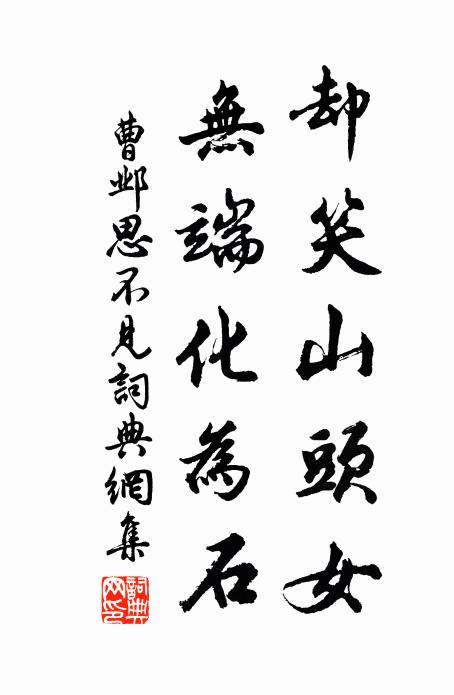 却笑山頭女
無端化為石
曹邺思不見詞典網集
詞典网印